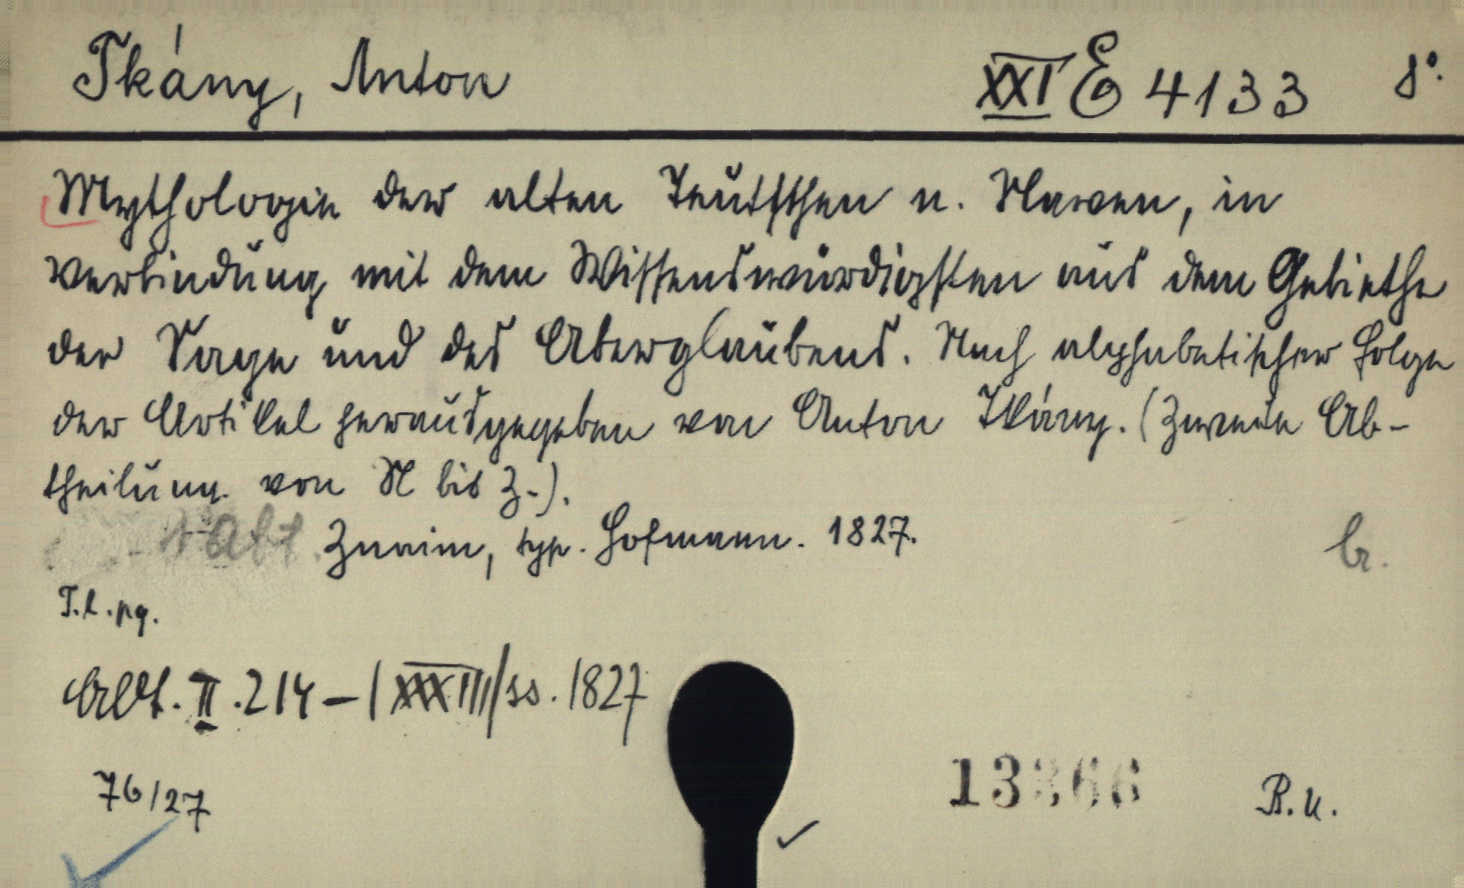 Tkány, Anton XXI E 4133 8°.
Mythologie der alten Teutschen u. Slawen, in
Verbindung mit dem Wissenswürdigsten aus dem Gebiethe
der Sage und des Aberglaubens. Nach alphabetischer Folge
der Artikel herausgegeben von Anton Tkány. (Zweite Ab-
theilung. von N bis Z.).
Znaim, typ. Hofmann. 1827.
br.
T. l. pg.
II. 214 - | XXXIII/ss. 1827
76/27
13366 R. u.